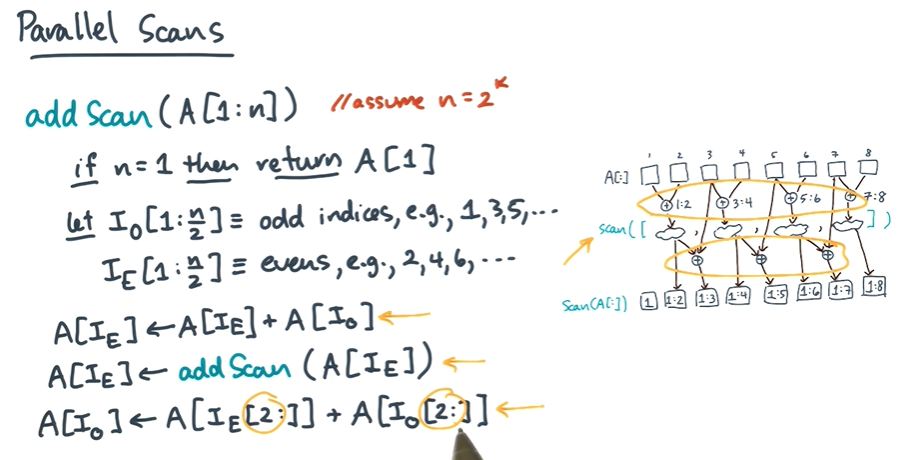 Parallel Scans
addScan(A[1:n]) //assume n=2^k
if n=1 then return A[1]
let I_O[1:n/2] ≡ odd indices, e.g., 1,3,5,...
I_E[1:n/2] ≡ evens, e.g., 2,4,6,...
A[I_E] ← A[I_E] + A[I_O]
A[I_E] ← addScan (A[I_E])
A[I_O] ← A[I_E[2:]] + A[I_O[2:]]
1 2 3 4 5 6 7 8
A[:]
1:2 3:4 5:6 7:8
scan([ , , , ])
scan(A[:]) 1 1:2 1:3 1:4 1:5 1:6 1:7 1:8